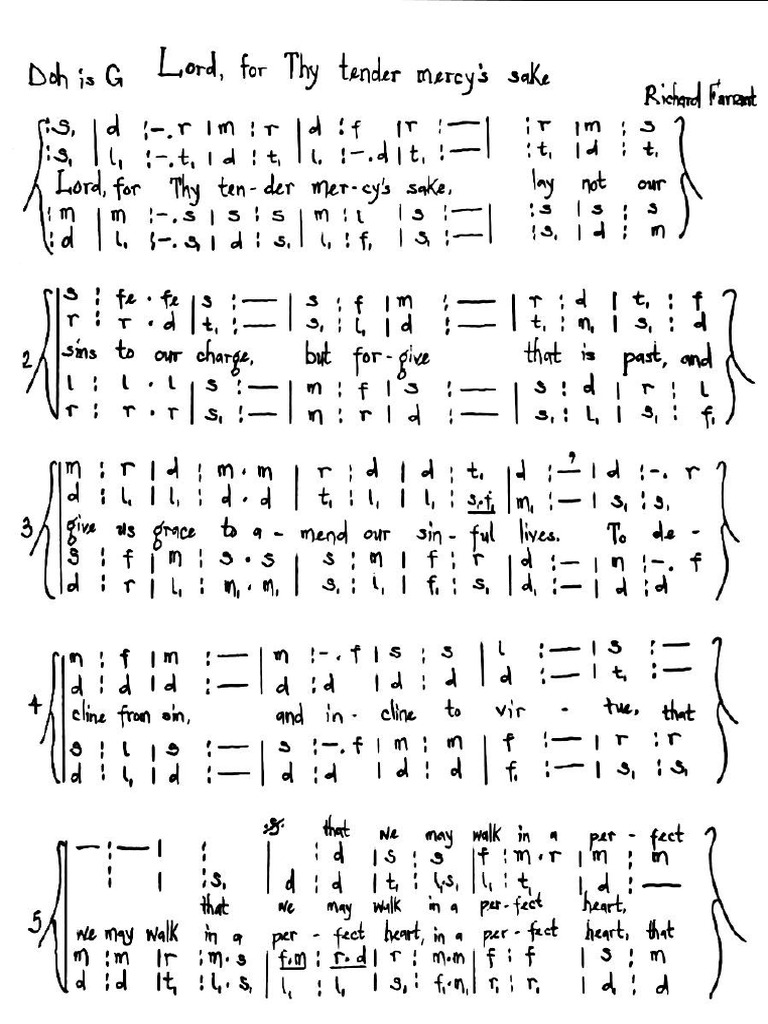 Doh is G Lord, for Thy tender mercy's sake
Richard Farrant
:s, | d :-. r | m : r | d : f | r :— | : r | m : s
:s, | l, :-. t, | d : t, | l, :-. d | t, :— | : t, | d : t,
Lord, for Thy ten-der mer-cy's sake, lay not our
:m | m :-. s | s : s | m : l | s :— | : s | s : s
:d | l, :-. s, | d : s, | l, : f, | s, :— | : s, | d : m
2
s : fe . fe | s :— | s : f | m :— | r : d | t, : f
r : r . d | t, :— | s, : l, | d :— | t, : m, | s, : d
sins to our charge, but for-give that is past, and
l : l . l | s :— | m : f | s :— | s : d | r : l
r : r . r | s, :— | m : r | d :— | s, : l, | s, : f,
3
m : r | d : m . m | r : d | d : t, | d :—' | d :-. r
d : l, | l, : d . d | t, : l, | l, : s, . f, | m, :— | s, : s,
give us grace to a - mend our sin - ful lives. To de -
s : f | m : s . s | s : m | f : r | d :— | m :-. f
d : r | l, : m, . m, | s, : l, | f, : s, | d, :— | d : d
4
m : f | m :— | m :-. f | s : s | l :— | s :—
d : d | d :— | d : d | d : d | d :— | t, :—
cline from sin, and in - cline to vir - tue, that
s : l | s :— | s :-. f | m : m | f :— | r : r
d : l, | d :— | d : d | d : d | f, :— | s, : s,
5
that we may walk in a per - fect
— :— | : | : d | s : s | f : m . r | m : m
: | : s, | d : d | t, : l, . s, | l, : t, | d :—
that we may walk in a per-fect heart,
we may walk in a per - fect heart, in a per - fect heart, that
m : m | r : m . s | f . m : r . d | r : m . m | f : f | s : m
d : d | t, : l, . s, | l, : l, | s, : f, . m, | r, : r, | d : d